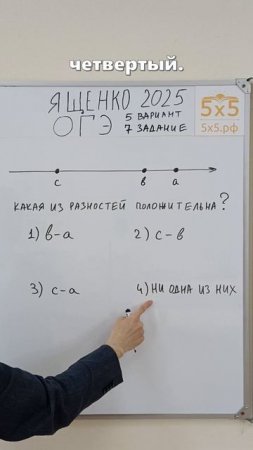 четвертый.
ЯЩЕНКО 2025
ОГЭ
5 ВАРИАНТ
7 ЗАДАНИЕ
5х5
5x5.рф
c в a
КАКАЯ ИЗ РАЗНОСТЕЙ ПОЛОЖИТЕЛЬНА?
1) в-a 2) c-в
3) c-a 4) НИ ОДНА ИЗ НИХ